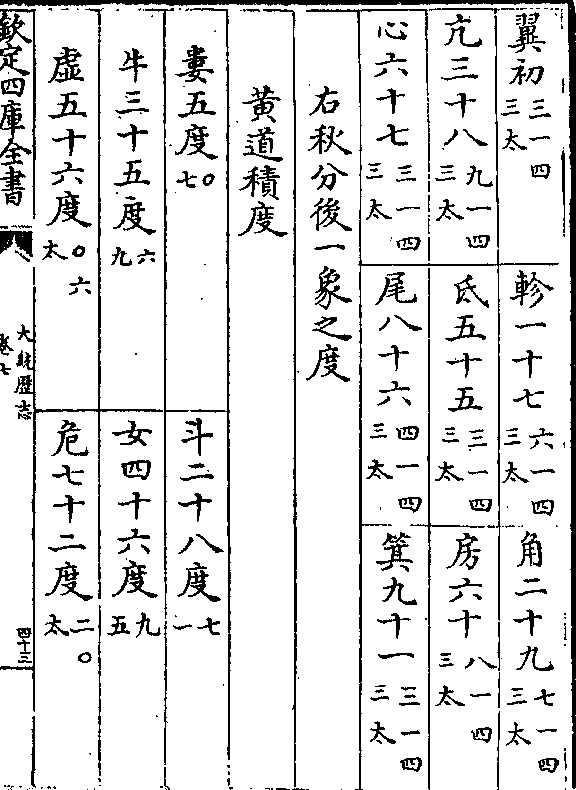 翼初三一四三太 軫一十七六一四三太 角二十九七一四三太
亢三十八九一四三太 氐五十五三一四三太 房六十八一四三太
心六十七三一四三太 尾八十六四一四三太 箕九十一三一四三太
右秋分後一象之度
黄道積度
婁五度〇七 斗二十八度七一
牛三十五度六九 女四十六度九五
虛五十六度〇六太 危七十二度二〇太
欽定四庫全書
大統歷志
卷七
四十三